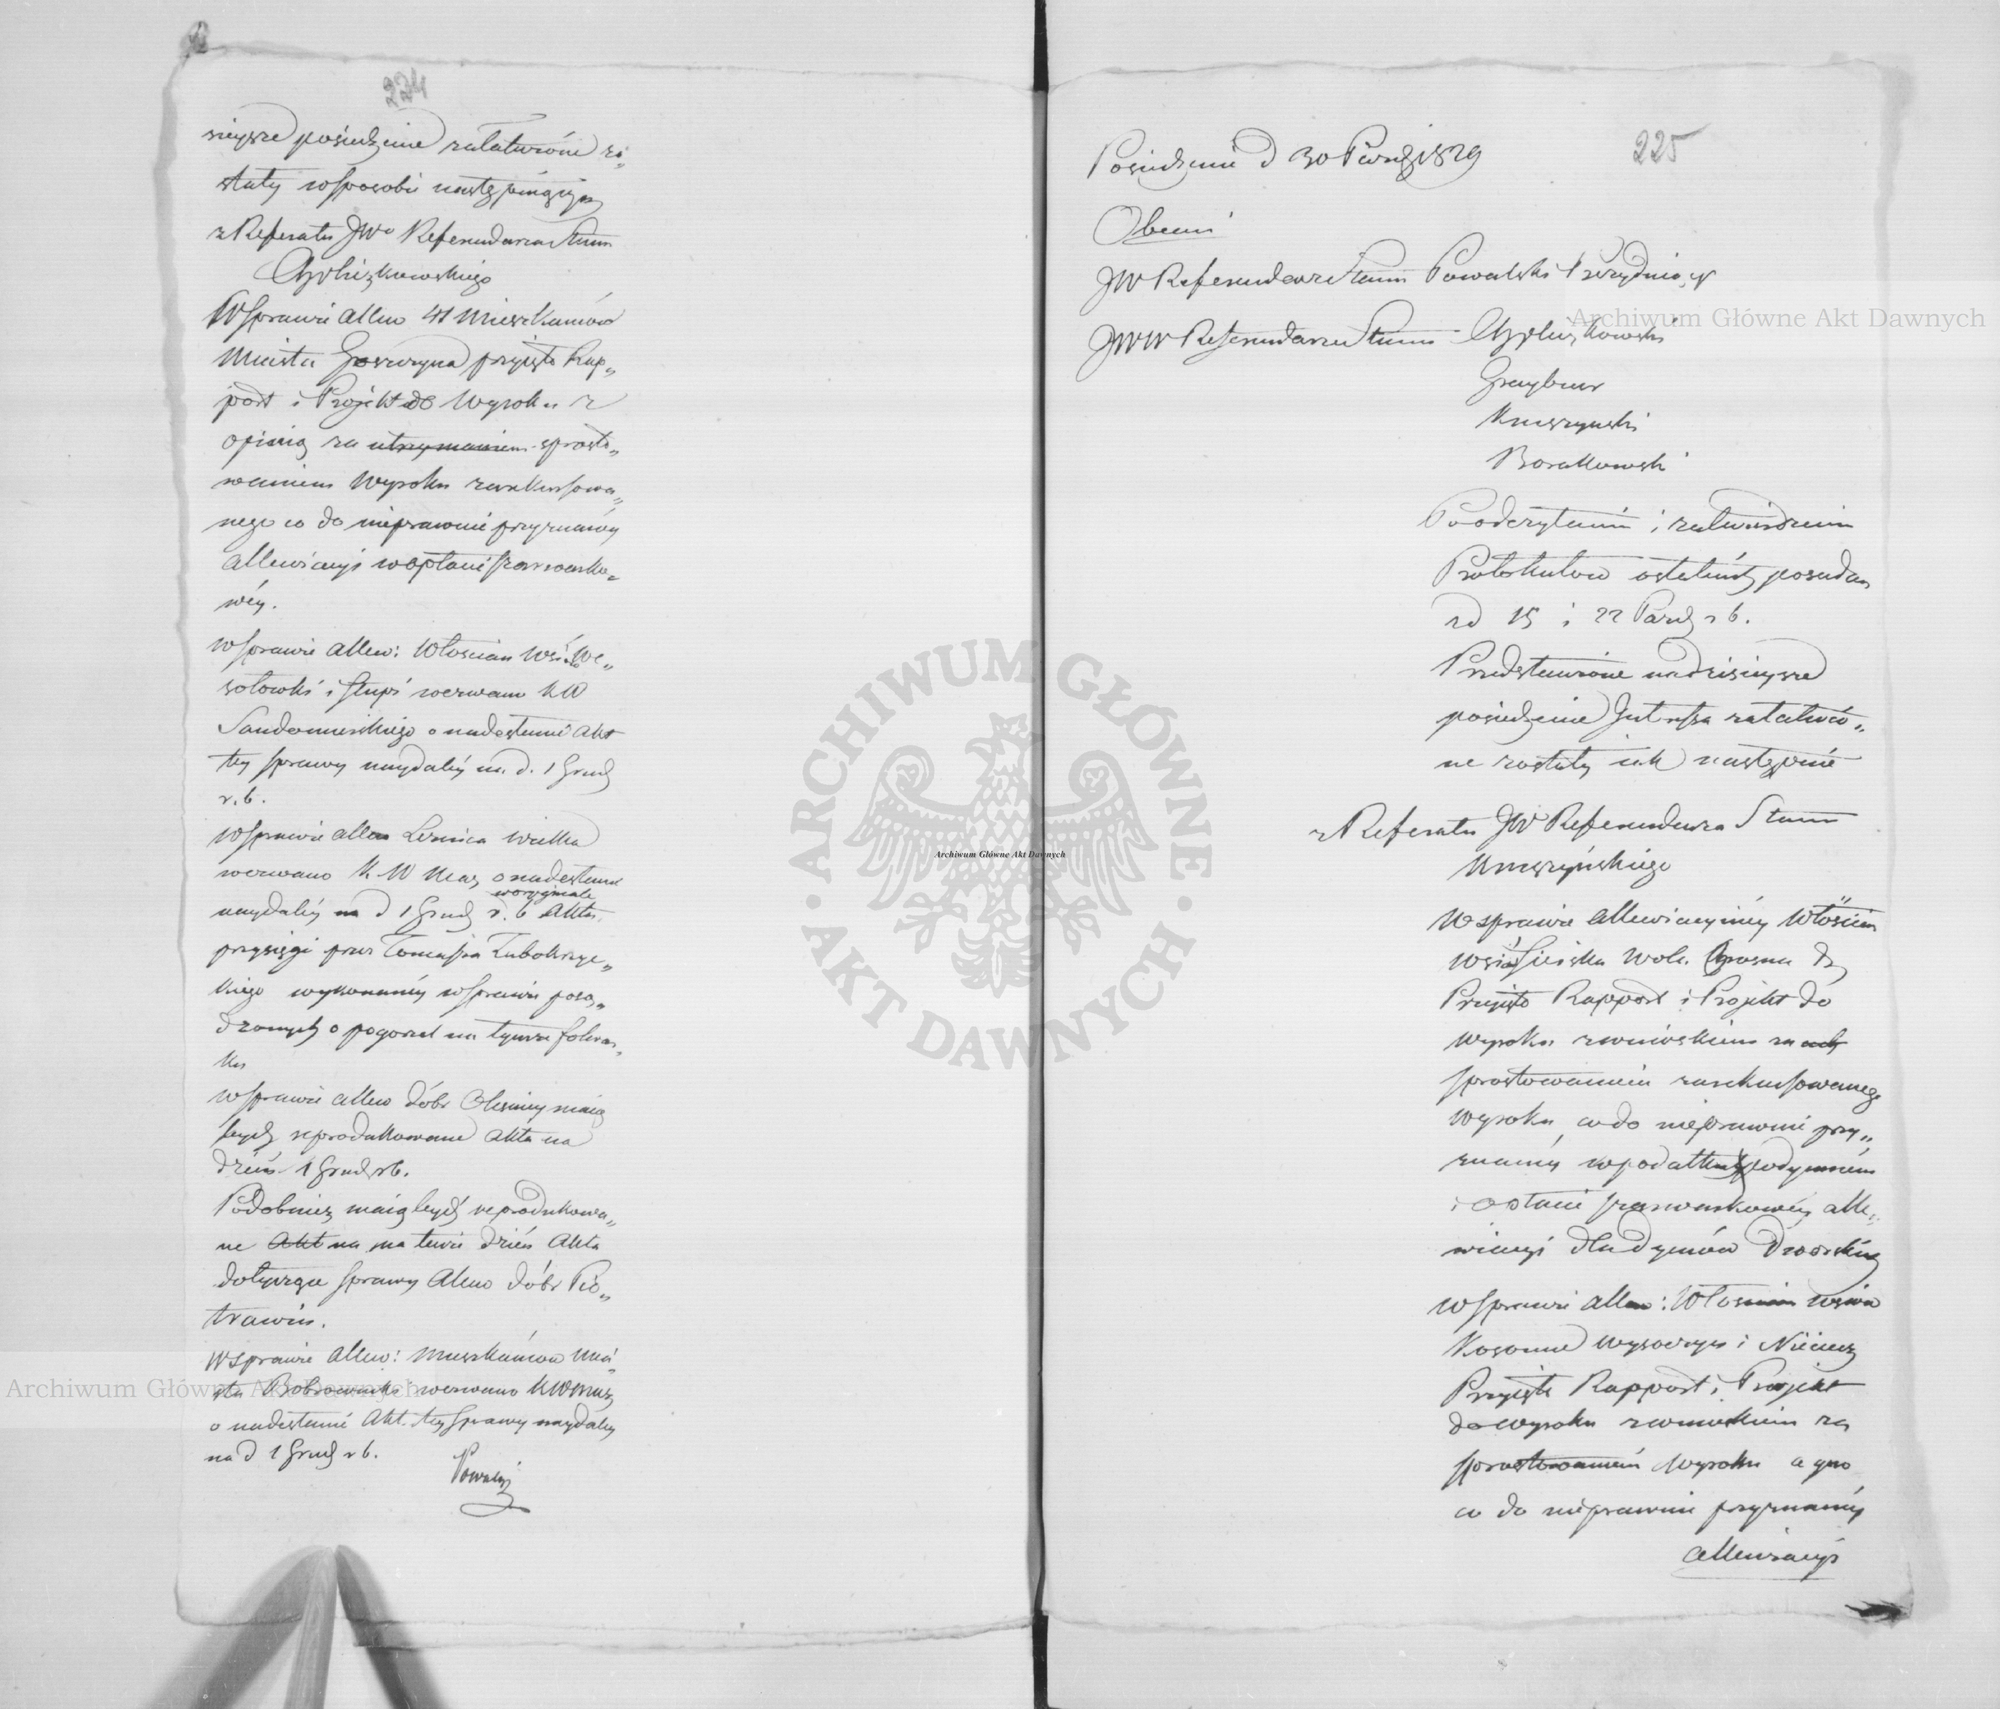 224
nieysze posiedzenie załatwione zo„
stały w sposobie następuiącym
z Referatu JWo Referendarza Stanu
W sprawie allew 41 Mieszkańców
Miasta Goszczyna przyięto Rap„
port i Projekt do Wyroku z
opinią za utrzymaniem sprosto„
waniem Wyroku zaskarżowa„
nego co do nieprawnie przyznaney
allewiacyi w opłacie szarwarko„
wéy.
w sprawie allew: Włościan Wsiów We„
sołówki i Słupi wezwano KW
Sandomierskiego o nadesłanie Akt
tey sprawy naydaléy na d. 1 Grud
r. b.
w sprawie allew Leśnica wielka
wezwano K W Maz o nadesłanie
w oryginale
naydaléy na d 1 Grud r. b Aktu
przysięgi przez Tomasza Zubokrzyc„
kiego wykonanéy w sprawie poso„
dzonych o pogorzel na tymże folwar„
ku
w sprawie allew dóbr Oleśnicy maią
bydź reprodukowane Akta na
dzień 1 Grud r b.
Podobnież maią bydź reprodukowa„
ne Akt na na tenże dzień Akta
dotyczące sprawy Allew dóbr Pio„
trawin.
W sprawie Allew: Mieszkańców Mia„
sta Bobrownik wezwano KWMaz
o nadesłanie Akt. tey sprawy naydaléy
na d 1 Grud r b.
Powalski
225
Posiedzenie d 30 Paźdz 1829
Obecni
JW Referendarz Stanu Powalski Prezyduiący
JWW Referendarze Stanu
Grzybow
Kruszyński
Borakowski
Po odczytaniu i zatwierdzeniu
Protokułów ostatnich posiedzeń
z d 15 i 22 Paźdz r b.
Przedstawione na dzisieysze
posiedzenie Interessa załatwio„
ne zostały iak następuie
z Referatu JW Referendarza Stanu
Kruszyńskiego
W sprawie Allewiacyinéy Włościan
Wsiów Sieńska Wola
Przyięto Rapport i Projekt do
Wyroku z wnioskiem za
sprostowaniem zaskarżowanego
Wyroku, co do nieprawnie przy„
znanéy w podatku podymném
i opłacie szarwarkowéy alle„
wiacyi dla dymów Dworskich
W sprawie allew: Włościan wsiów
przyięto Rapport i Projekt
do Wyroku z wnioskiem za
sprostowaniem Wyroku a quo
co do nieprawnie przyznanéy
allewiacyi
Archiwum Główne Akt Dawnych
Archiwum Główne Akt Dawnych
Archiwum Główne Akt Dawnych
ARCHIWUM GŁÓWNE · AKT DAWNYCH ·